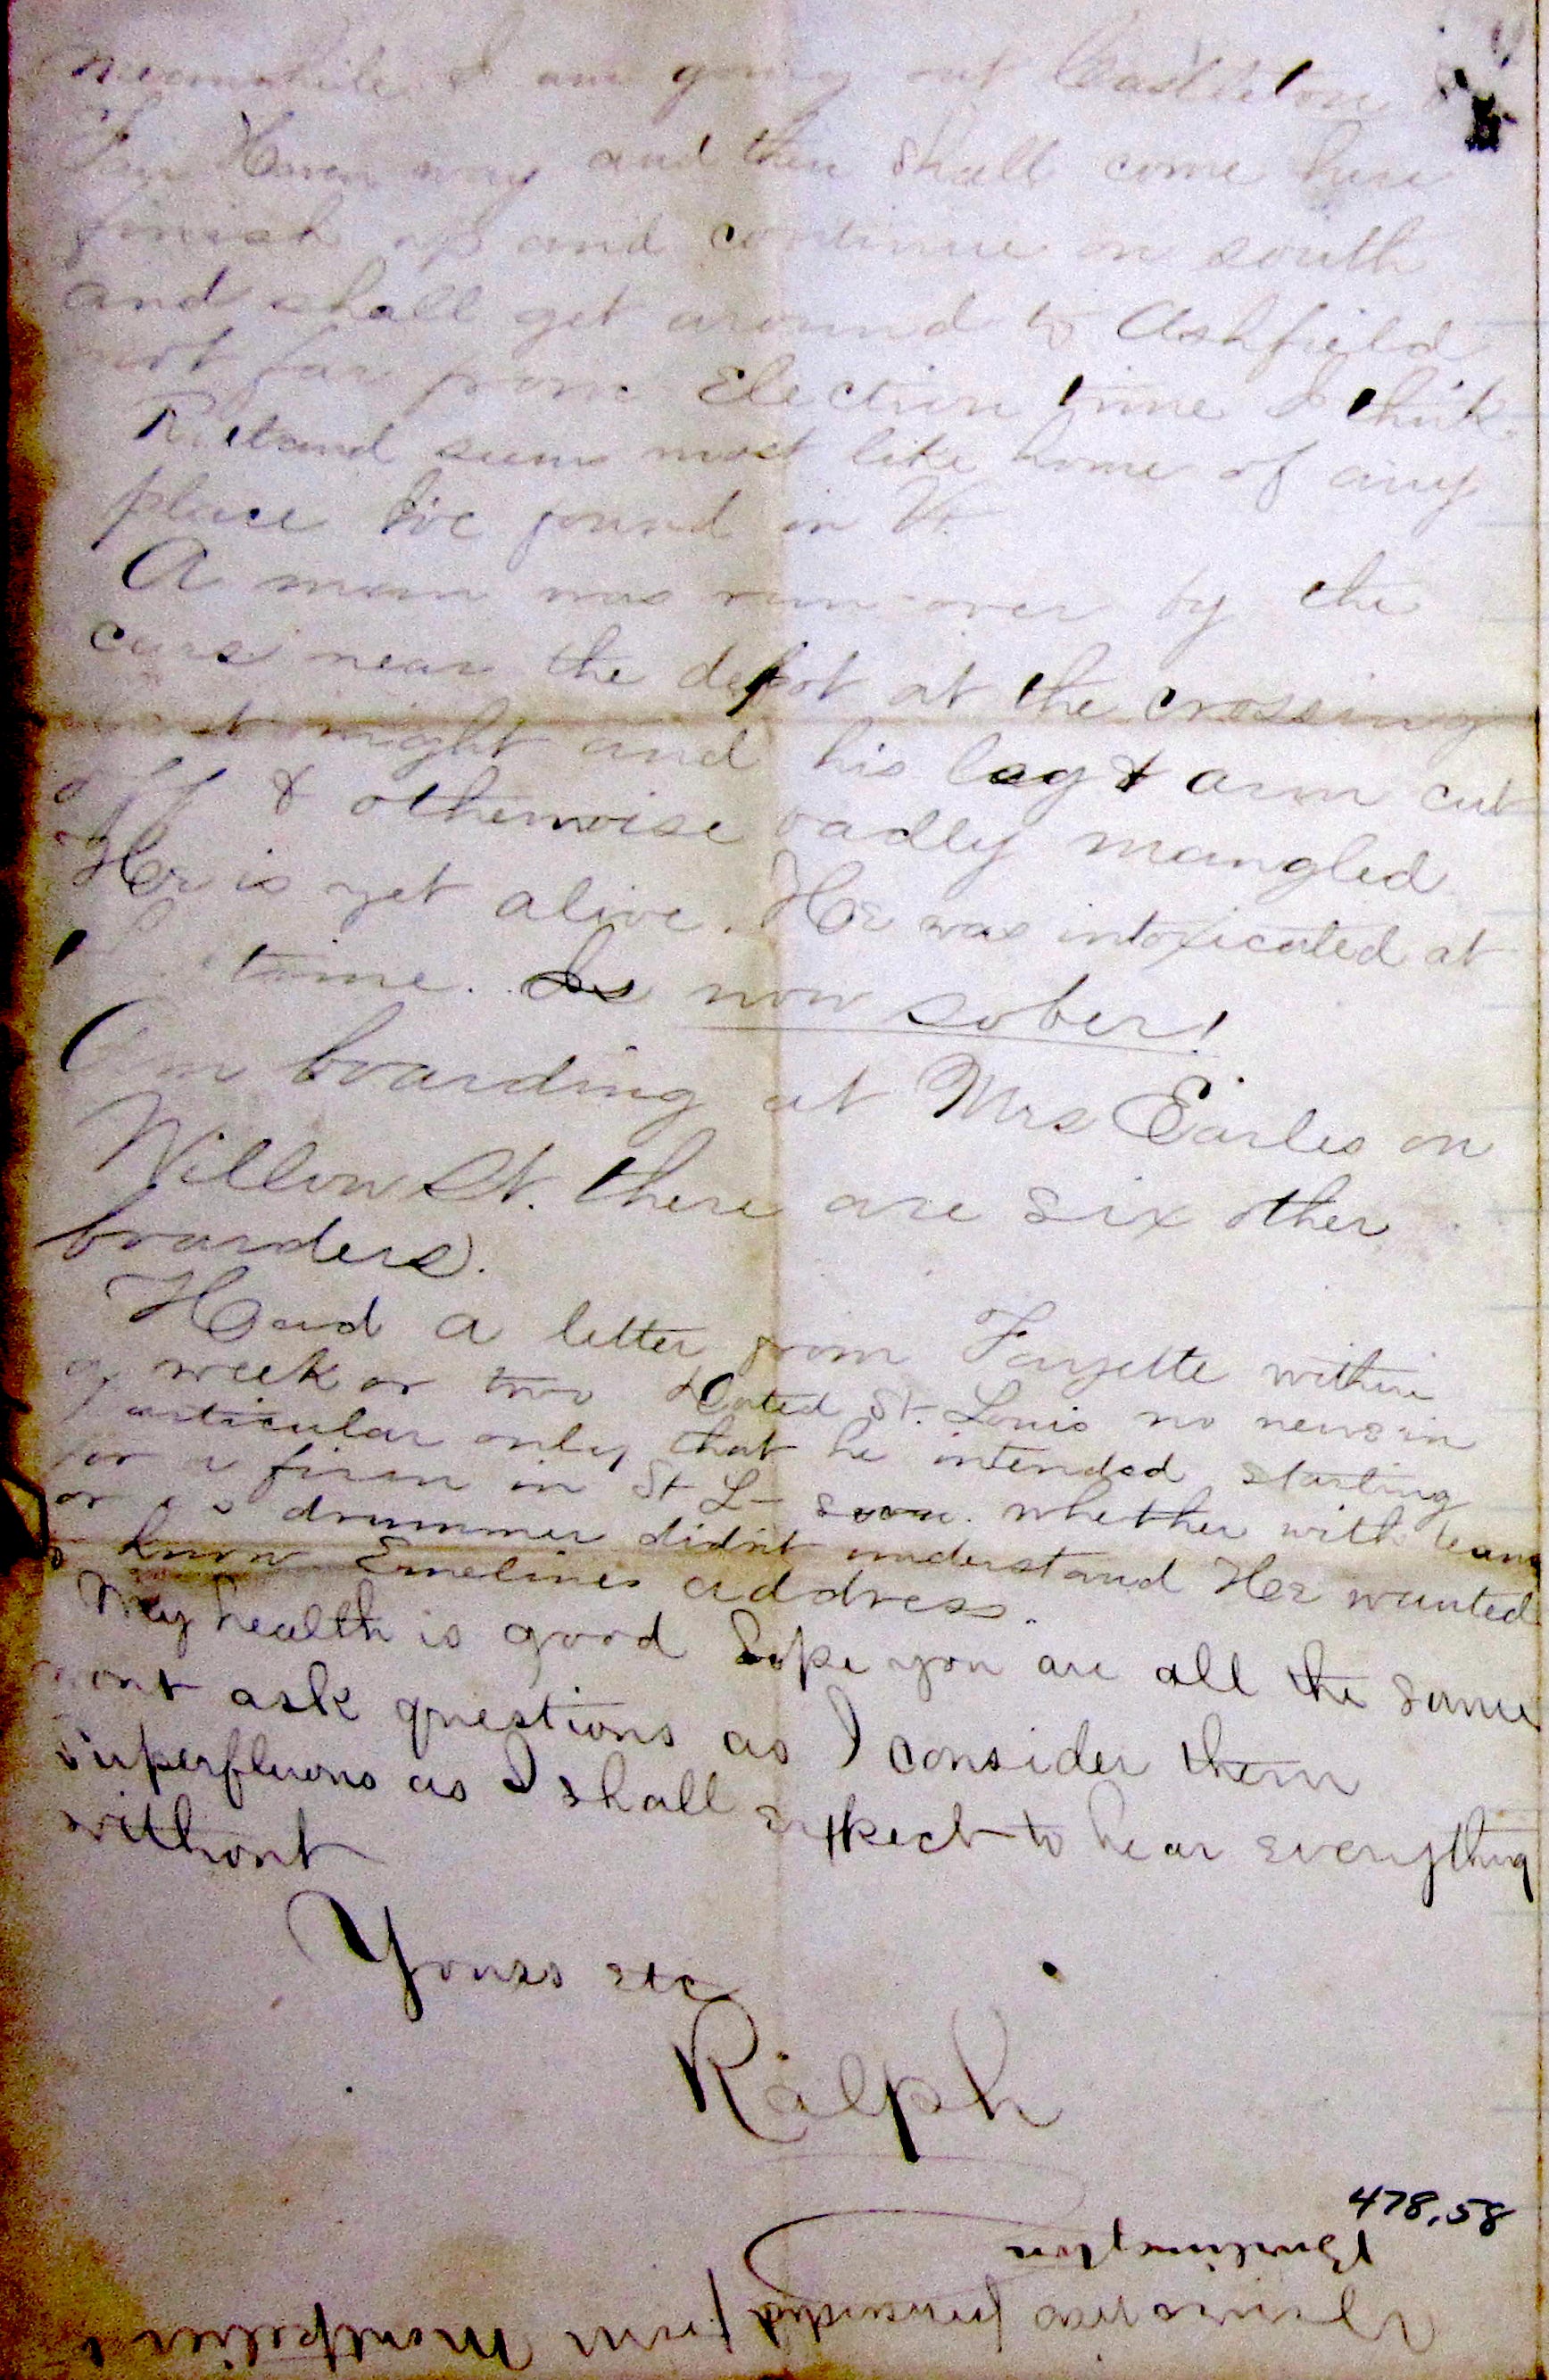 meanwhile I am going out Castleton &
Fair Haven way and then shall come here
finish up and continue on south
and shall get around to Ashfield
not far from Election time I think.
Rutland seems most like home of any
place I've found in Vt.
A man was run over by the
cars near the depot at the crossing
night and his leg & arm cut
off & otherwise badly mangled
He is yet alive. He was intoxicated at
time. Is now sober!
Am boarding at Mrs Earles on
Willow St. there are six other
boarders.
Had a letter from Fayette within
a week or two dated St. Louis no news in
particular only that he intended starting
for a firm in St L- soon. whether with team
or as drummer didn't understand He wanted
to know Emelines address.
My health is good hope you are all the same
wont ask questions as I consider them
superfluous as I shall expect to hear everything
without
Yours etc
Ralph
478.58
Yours was forwarded from Montpelier to
Burlington